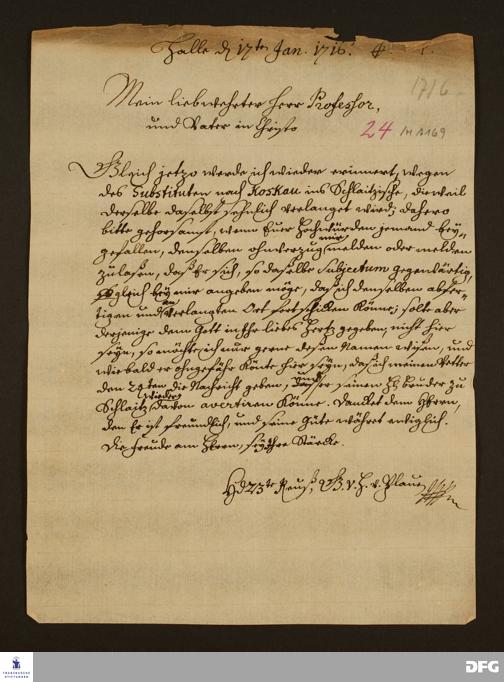 Halle d 17ten Jan. 1716.
1716
Mein liebwehrter Herr Professor,
und Vater in Christo
24 /M 1169
Gleich jetzo werde ich wieder erinnert, wegen
des Substituten nach Koskau ins Schlaitzische, dieweil
derselbe daselbst sehnlich verlanget wird; dahero
bitte gehorsamst, wenn Euer Hochwürden jemand bey-
gefallen, denselben ohnverzug mir melden oder melden
zu lassen, daß Er sich, so dasselbe Subjectum gegenwärtig,
gleich bey mir angeben möge, daß ich denselben abfer-
tigen und an verlangten Ort fortschicken könne; solte aber
derjenige dem Gott in Ihr liebes Hertz gegeben, nicht hier
seyn, so möchte ich nur gerne dessen Namen wißen, und
wie bald er ohngefähr könte hier seyn, daß ich meinem Vetter
den 24ten die Nachricht geben, daß er seinem H. bruder zu
Schlaitz wieder davon avertiren könne. Dancket dem Herrn,
den Er ist freundlich, und seine Güte währet ewiglich.
Die freude am Herrn, sey Ihre Stärcke.
H d 23te Reuß, G. v. H. v. Plauen
FRANCKESCHE
STIFTUNGEN
DFG